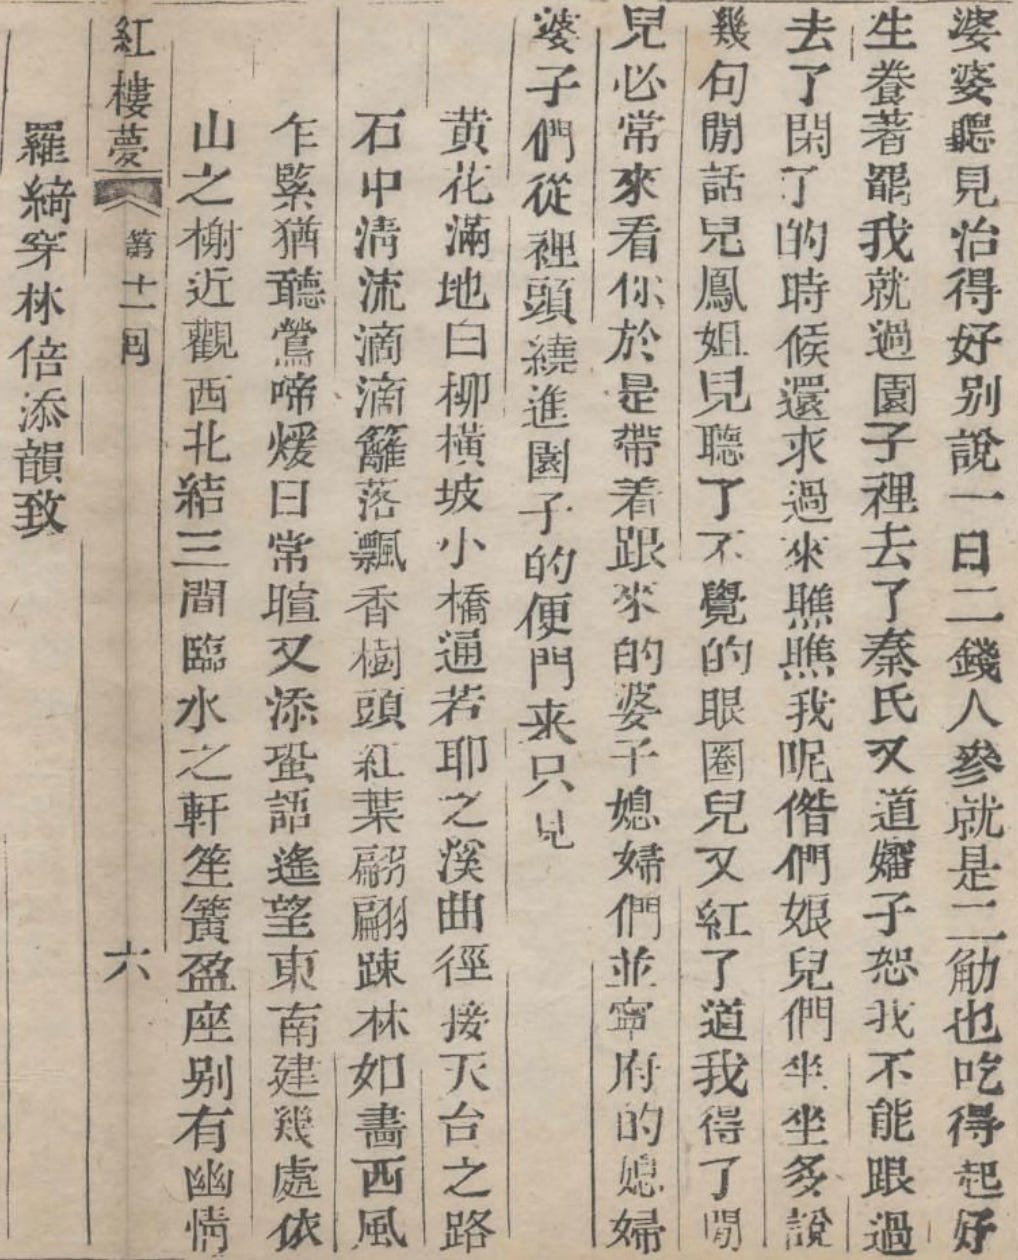 婆婆聽見治得好别說一日二錢人參就是二觔也吃得起好
生養著罷我就過園子裡去了秦氏又道嬸子恕我不能跟過
去了閑了的時候還求過來瞧瞧我呢偺們娘兒們坐坐多說
幾句閒話兒鳳姐兒聽了不覺的眼圈兒又紅了道我得了閒
兒必常來看你於是帶着跟來的婆子媳婦們並寧府的媳婦
婆子們從裡頭繞進園子的便門来只見
黄花滿地白柳橫坡小橋通若耶之溪曲徑接天台之路
石中清流滴滴籬落飄香樹頭紅葉翩翩踈林如畵西風
乍緊猶聽鶯啼煖日常暄又添蛩語遙望東南建幾處依
山之榭近觀西北結三間臨水之軒笙簧盈座别有幽情
紅樓夢 第十一囘 六
羅綺穿林倍添韻致